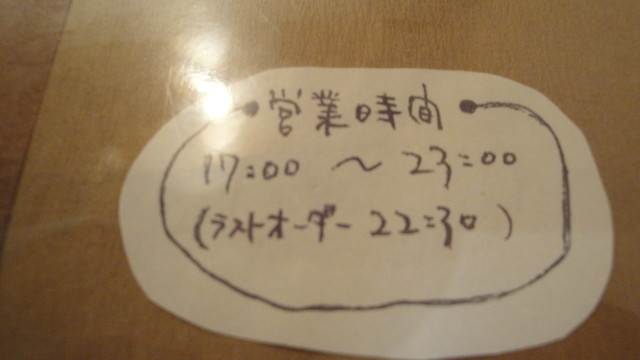 営業時間
17:00 〜 23:00
(ラストオーダー 22:30)